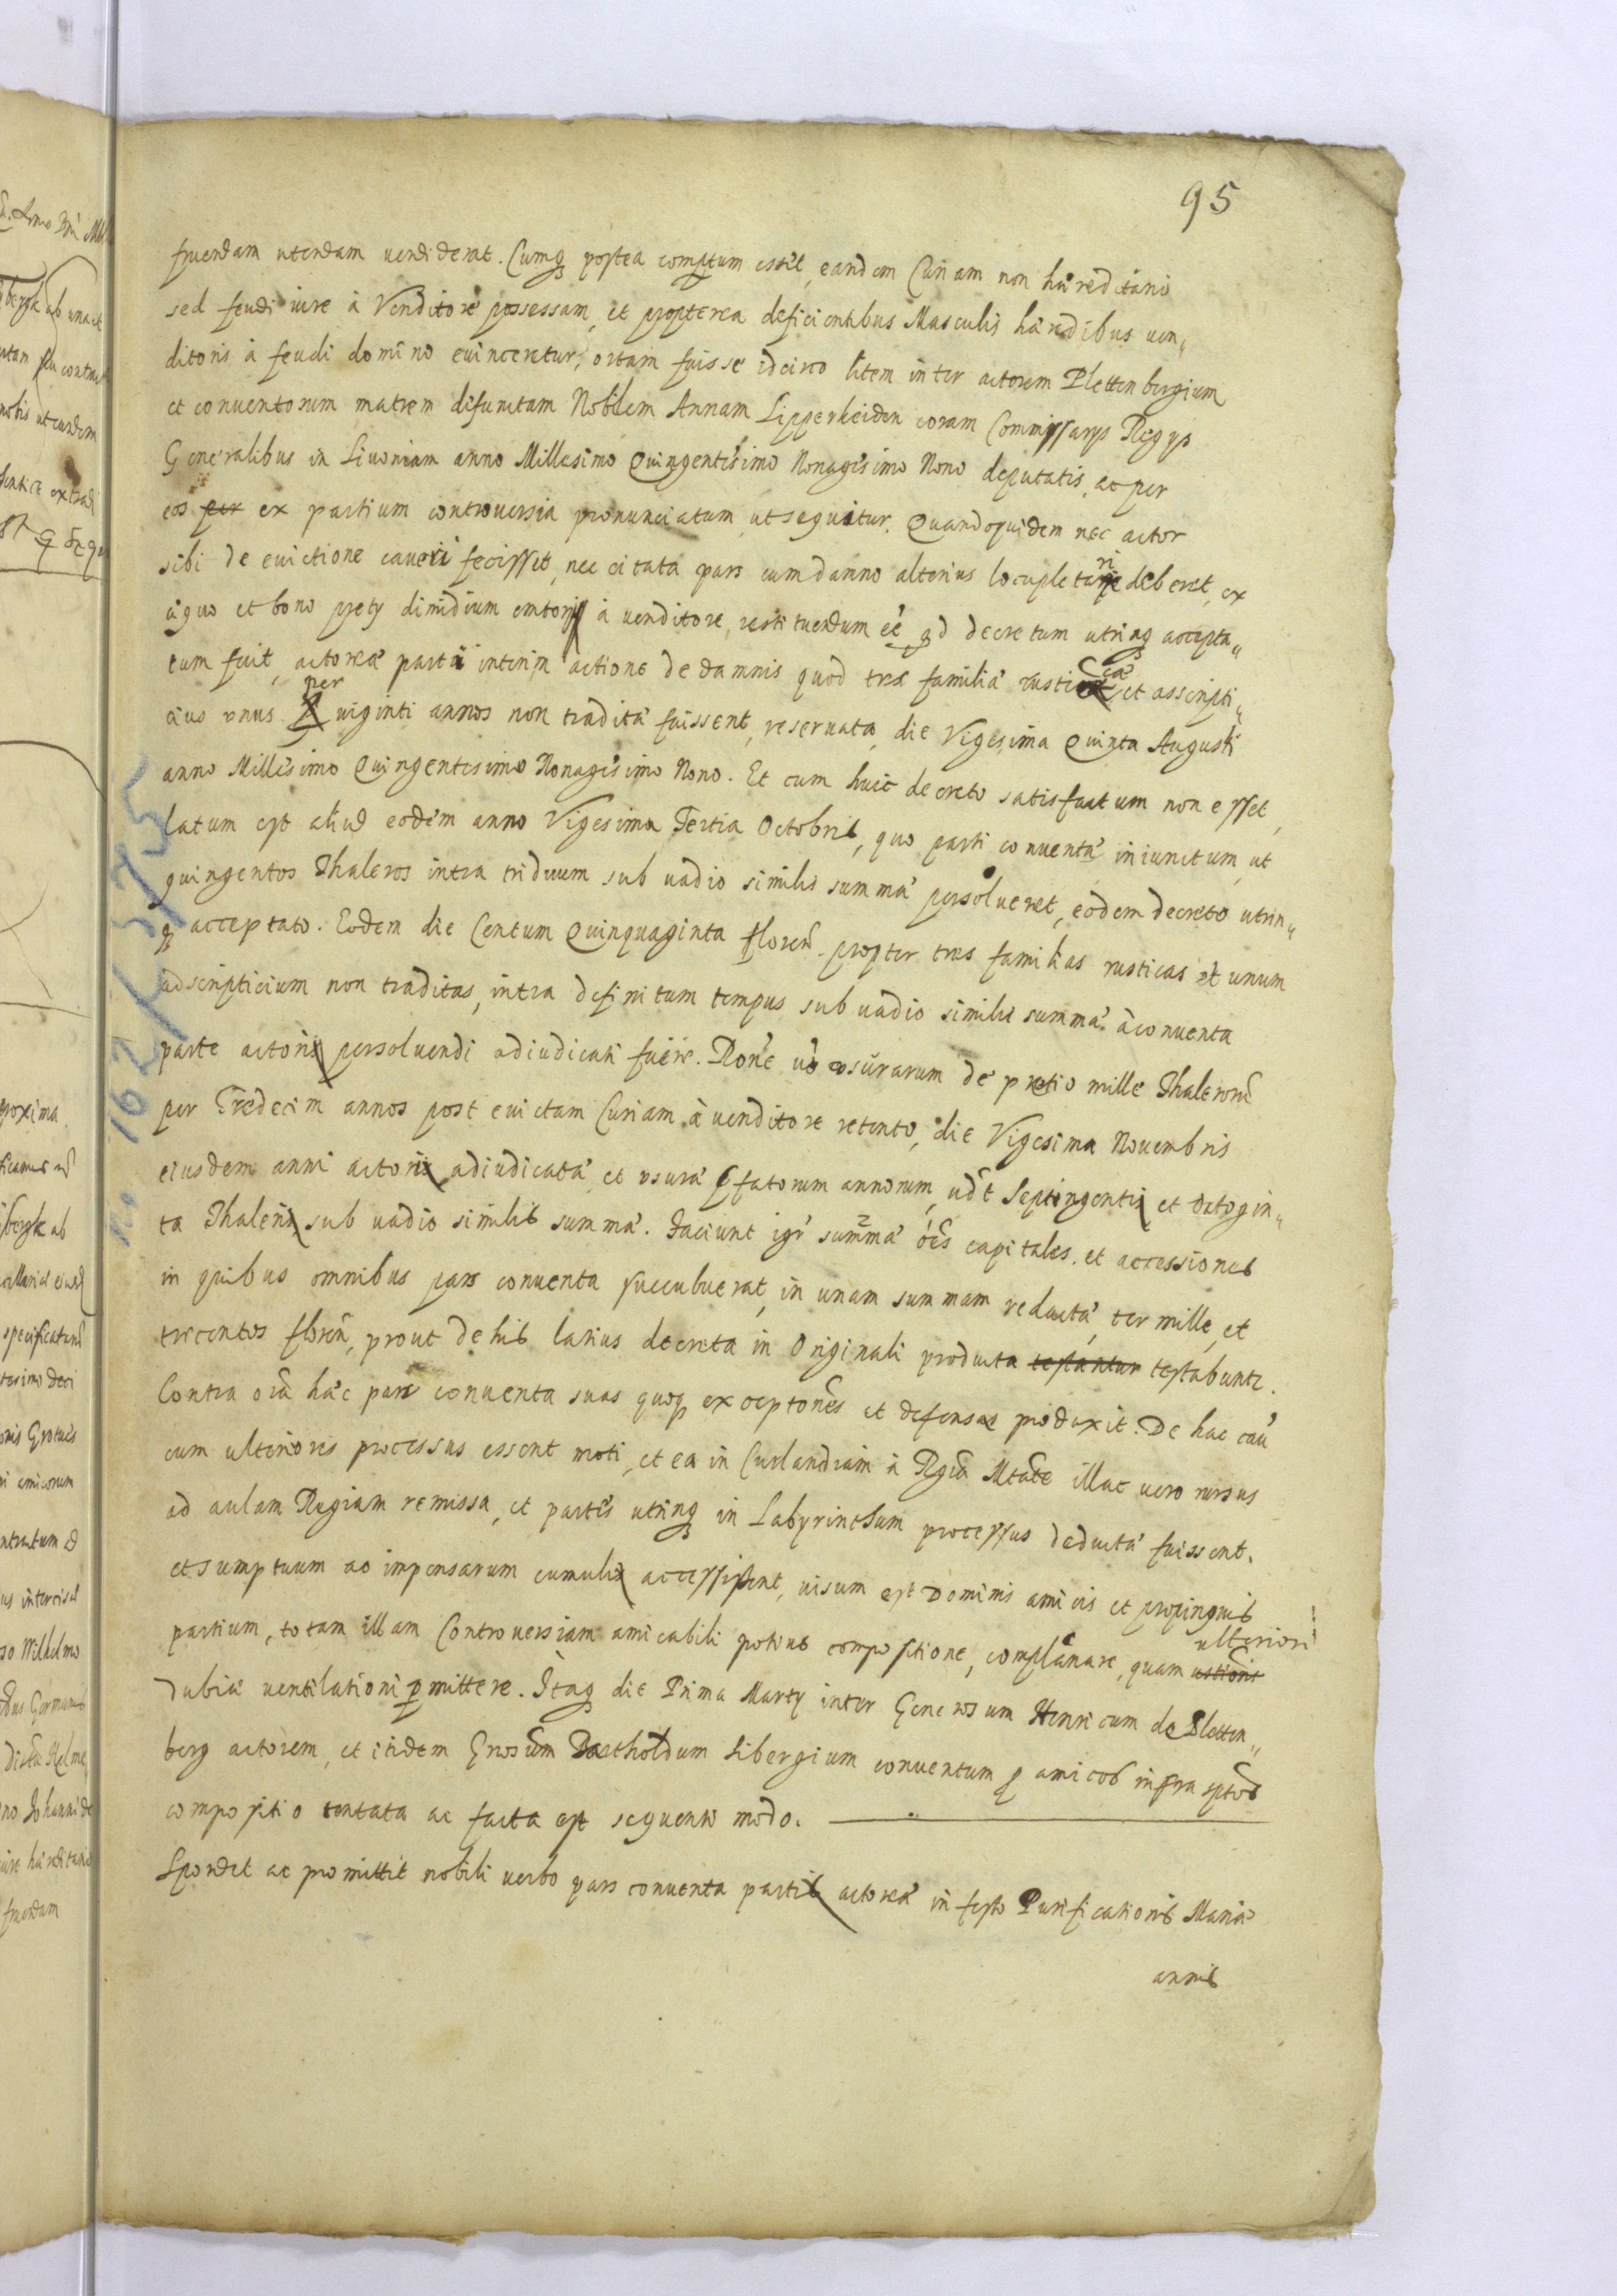 95
fruendam utendam uendiderat. Cumq₃ postea comptum esset, eandem Curiam non hæreditario
sed feudi iure à Venditore possessam, et propterea deficientibus Masculis hæredibus uen„
ditoris à feudi domino euinceretur, ortam fuisse idcirco litem inter actorem Plettenbergium
et conuentorum matrem defunctam Nobilem Annam Lipperheiden coram Commissarys Regys
Generalibus in Liuoniam anno Millesimo Quingentesimo Nonagesimo Nono deputatis, ac per
eos per ex partium controuersia pronunciatum ut sequitur. Quandoquidem nec actor
sibi de euictione caueri fecisset, nec citata pars cum damno alterius locupletari deberet, ex
æquo et bono prety dimidium emtori à uenditore restituendum eē qd decretum utrinq₃ accepta„
tum fuit, actoreæ parti interim actione de damnis quod tres familiæ rusticæ et asscripti„
cius unus per uiginti annos non traditæ fuissent, reseruata, die Vigesima Quinta Augusti
anno Millesimo Quingentesimo Nonagesimo Nono. Et cum huic decreto satisfactum non esset,
latum est aliud eodem anno Vigesima Tertia Octobris, quo parti conuentæ iniunctum, ut
quingentos Thaleros intra triduum sub uadio similis summæ persolueret, eodem decreto utrin„
q₃ acceptato. Eodem die Centum Quinquaginta floreñ propter tres familias rusticas et unum
adscripticium non traditas, intra definitum tempus sub uadio similis summæ à conuenta
parte actori persoluendi adiudicati fuēre. Roñe uō usurarum de pretio mille Thalerorū
per Tredecim annos post euictam Curiam à uenditore retento, die Vigesima Nouembris
eiusdem anni actori adiudicatæ et usuræ p̄fatorum annorum, udt Septingenti et octogin„
ta Thaleri sub uadio similis summæ. Faciunt igr summæ oēs capitales. et accessiones
in quibus omnibus pars conuenta succubuerat, in unam summam reductæ, ter mille, et
trecentos floreñ, prout de his latius decreta in Originali producta testantur testabuntr.
Contra oīa hæc pars conuenta suas quoq₃ exceptiones et defensas produxit. De hac cauā
cum ulterioris processus essent moti, et ea in Curlandiam à Regia Mtate illac uero rursus
ad aulam Regiam remissa, et partes utrinq₃ in Labyrinthum processus deductæ fuissent.
et sumptuum ac impensarum cumuli accessissent, uisum est Dominis amicis et propinquis
partium, totam illam Controuersiam amicabili potius compositione, complanare, quam ulteriori
dubiæ uentilationi p̱mittere. Itaq₃ die Prima Marty inter Generosum Henricum de Pletten„
berg actorem, et itidem Gnosum Bartholdum Sibergium conuentum p̱ amicos infra sptos
compositio tentata ac facta est sequenti modo.
Spondet ac promittit nobili uerbo pars conuenta parti actoreæ in festo Purificationis Mariæ
annis